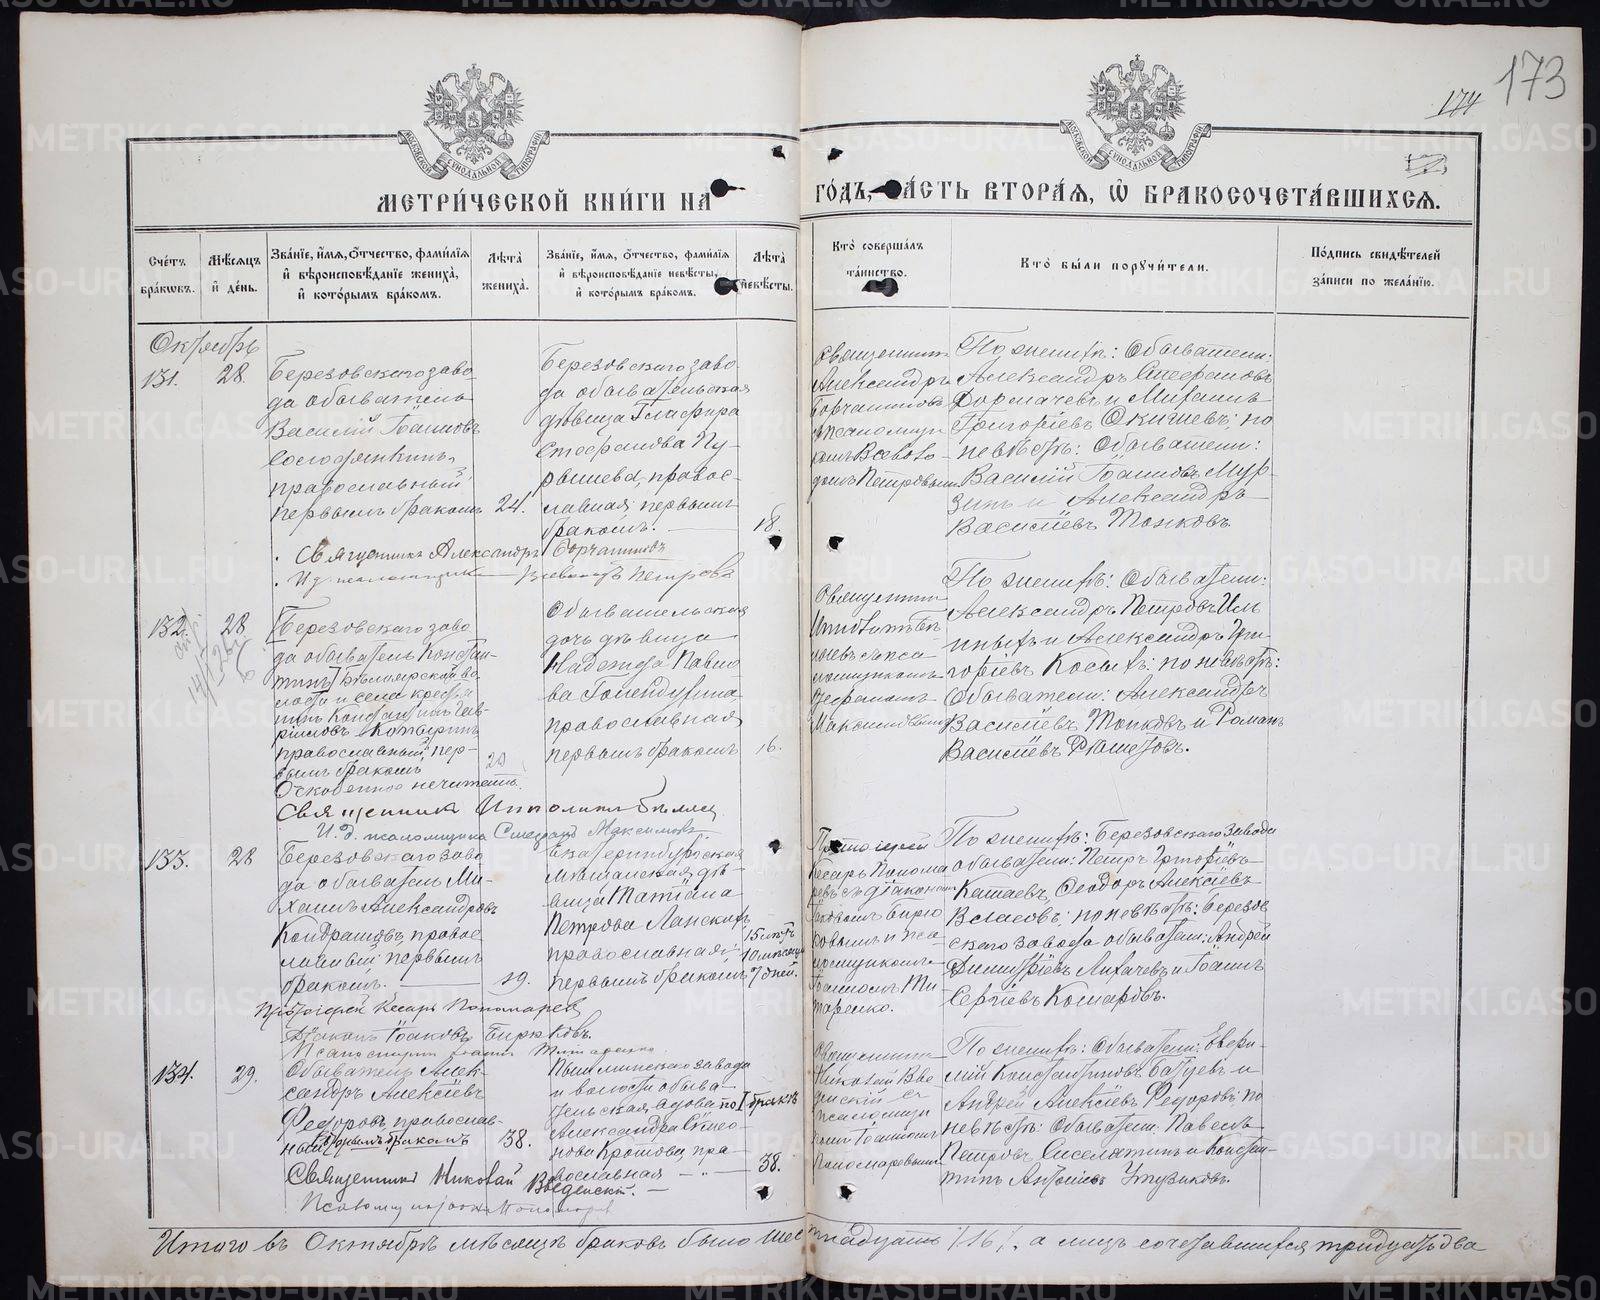 173
174
МЕТРИ́ЧЕСКОЙ КНИ́ГИ НА
ГО́ДЪ, ЧА́СТЬ ВТОРА́Я, Ѡ БРАКОСОЧЕТА́ВШИХСЯ.
Сче́тъ бра́ковъ.
Мѣ́сяцъ и де́нь.
Зва́ніе, и́мя, о́тчество, фами́лія и вѣроисповѣ́даніе жениха́, и кото́рымъ бра́комъ.
Лѣта́ жениха́.
Зва́ніе, и́мя, о́тчество, фами́лія и вѣроисповѣ́даніе невѣ́сты, и кото́рымъ бра́комъ.
Лѣта́ невѣ́сты.
Кто̀ соверша́лъ та́инство.
Кто̀ бы́ли поручи́тели.
По́дпись свидѣ́телей за́писи по жела́нію.
Октябрь
131.
28.
Березовскаго заво
да обыватель
Василій Іоанновъ
православный
первымъ бракомъ
24.
Березовскаго заво
да обывательская
дѣвица Глафира
Стефанова Пу-
рышева, правос-
лавная, первымъ
бракомъ.
18.
Священникъ
Александръ
Горчаниновъ
съ псаломщи
комъ Всеволо-
домъ Петровымъ
По женихѣ: Обыватели:
Александръ Стефановъ
и Михаилъ
Григоріевъ Окишевъ; по
невѣстѣ: Обыватели:
Василій Іоанновъ Мур-
зинъ и Александръ
Васильевъ Топковъ.
Священникъ Александръ Горчаниновъ
И. д. псаломщика Всеволодъ Петровъ
132.
28
Березовскаго заво
да обыватель Констан-
тинъ
лости и села крестья
нинъ Константинъ Гав-
риловъ
православный, пер-
вымъ бракомъ
Оскобленное не читать.
Обывательская
дочь дѣвица
Надежда Павло
ва Голендухина
православная
первымъ бракомъ
16.
Священникъ
Ипполитъ Бѣ
ляевъ съ пса
ломщикомъ
Стефаномъ
Максимовымъ
По женихѣ: Обыватели:
Александръ Петровъ Иль
иныхъ и Александръ Гри-
горіевъ Косыхъ: по невѣстѣ:
Обыватели: Александръ
Васильевъ Топковъ и Романъ
Васильевъ Рѣшетовъ.
Священникъ Ипполитъ Бѣляевъ
И. д. псаломщика Стефанъ Максимовъ
133.
28
Березовскаго заво
да обыватель Ми-
хаилъ Александровъ
Кондрашовъ, правос
лавный первымъ
бракомъ.
19.
Екатеринбургская
мѣщанская дѣ-
вица Татіана
Петрова Ланскихъ
православная
первымъ бракомъ
15 лѣтъ
10 мѣсяцевъ
7 дней.
Протоіерей
Кесарь Понома
ревъ съ діакономъ
Іаковомъ Бирю
ковымъ и пса-
ломщикомъ
Іоанномъ Ти
таренко.
По женихѣ: Березовскаго завода
обыватели: Петръ Григоріевъ
Катаевъ, Ѳеодоръ Алексіевъ
Власовъ; по невѣстѣ: Березов
скаго завода обыватели: Андрей
Димитріевъ Лихачевъ и Іоаннъ
Сергіевъ Комаровъ.
Протоіерей Кесарь Пономаревъ
Діаконъ Іаковъ Бирюковъ.
Псаломщикъ Іоаннъ Титаренко
134.
29.
Обыватель Алек-
сандръ Алексіевъ
Федоровъ, православ-
ный,
бракомъ
38.
Пышминскаго завода
и волости обыва-
тельская вдова по I бракѣ
Александра Симео-
нова Кротова, пра-
вославная
38.
Священникъ
Николай Вве
денскій съ
псаломщи
комъ Іоанномъ
Пономаревымъ
По женихѣ: Обыватели: Евфи-
мій Константиновъ Батуевъ и
Андрей Алексіевъ Федоровъ; по
невѣстѣ: Обыватели: Павелъ
Петровъ и Констан-
тинъ
Священникъ Николай Введенскій.
Псаломщикъ Іоаннъ Пономаревъ
Итого въ Октябрѣ мѣсяцѣ браковъ было шестнадцать /16/, а лицъ сочетавшихся тридцать два
METRIKI.GASO-URAL.RU